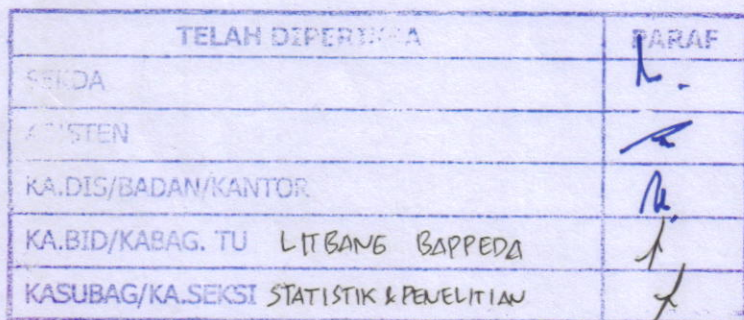 TELAH DIPERIKSA PARAF
SEKDA
ASISTEN
KA.DIS/BADAN/KANTOR
KA.BID/KABAG. TU LITBANG BAPPEDA
KASUBAG/KA.SEKSI STATISTIK & PENELITIAN